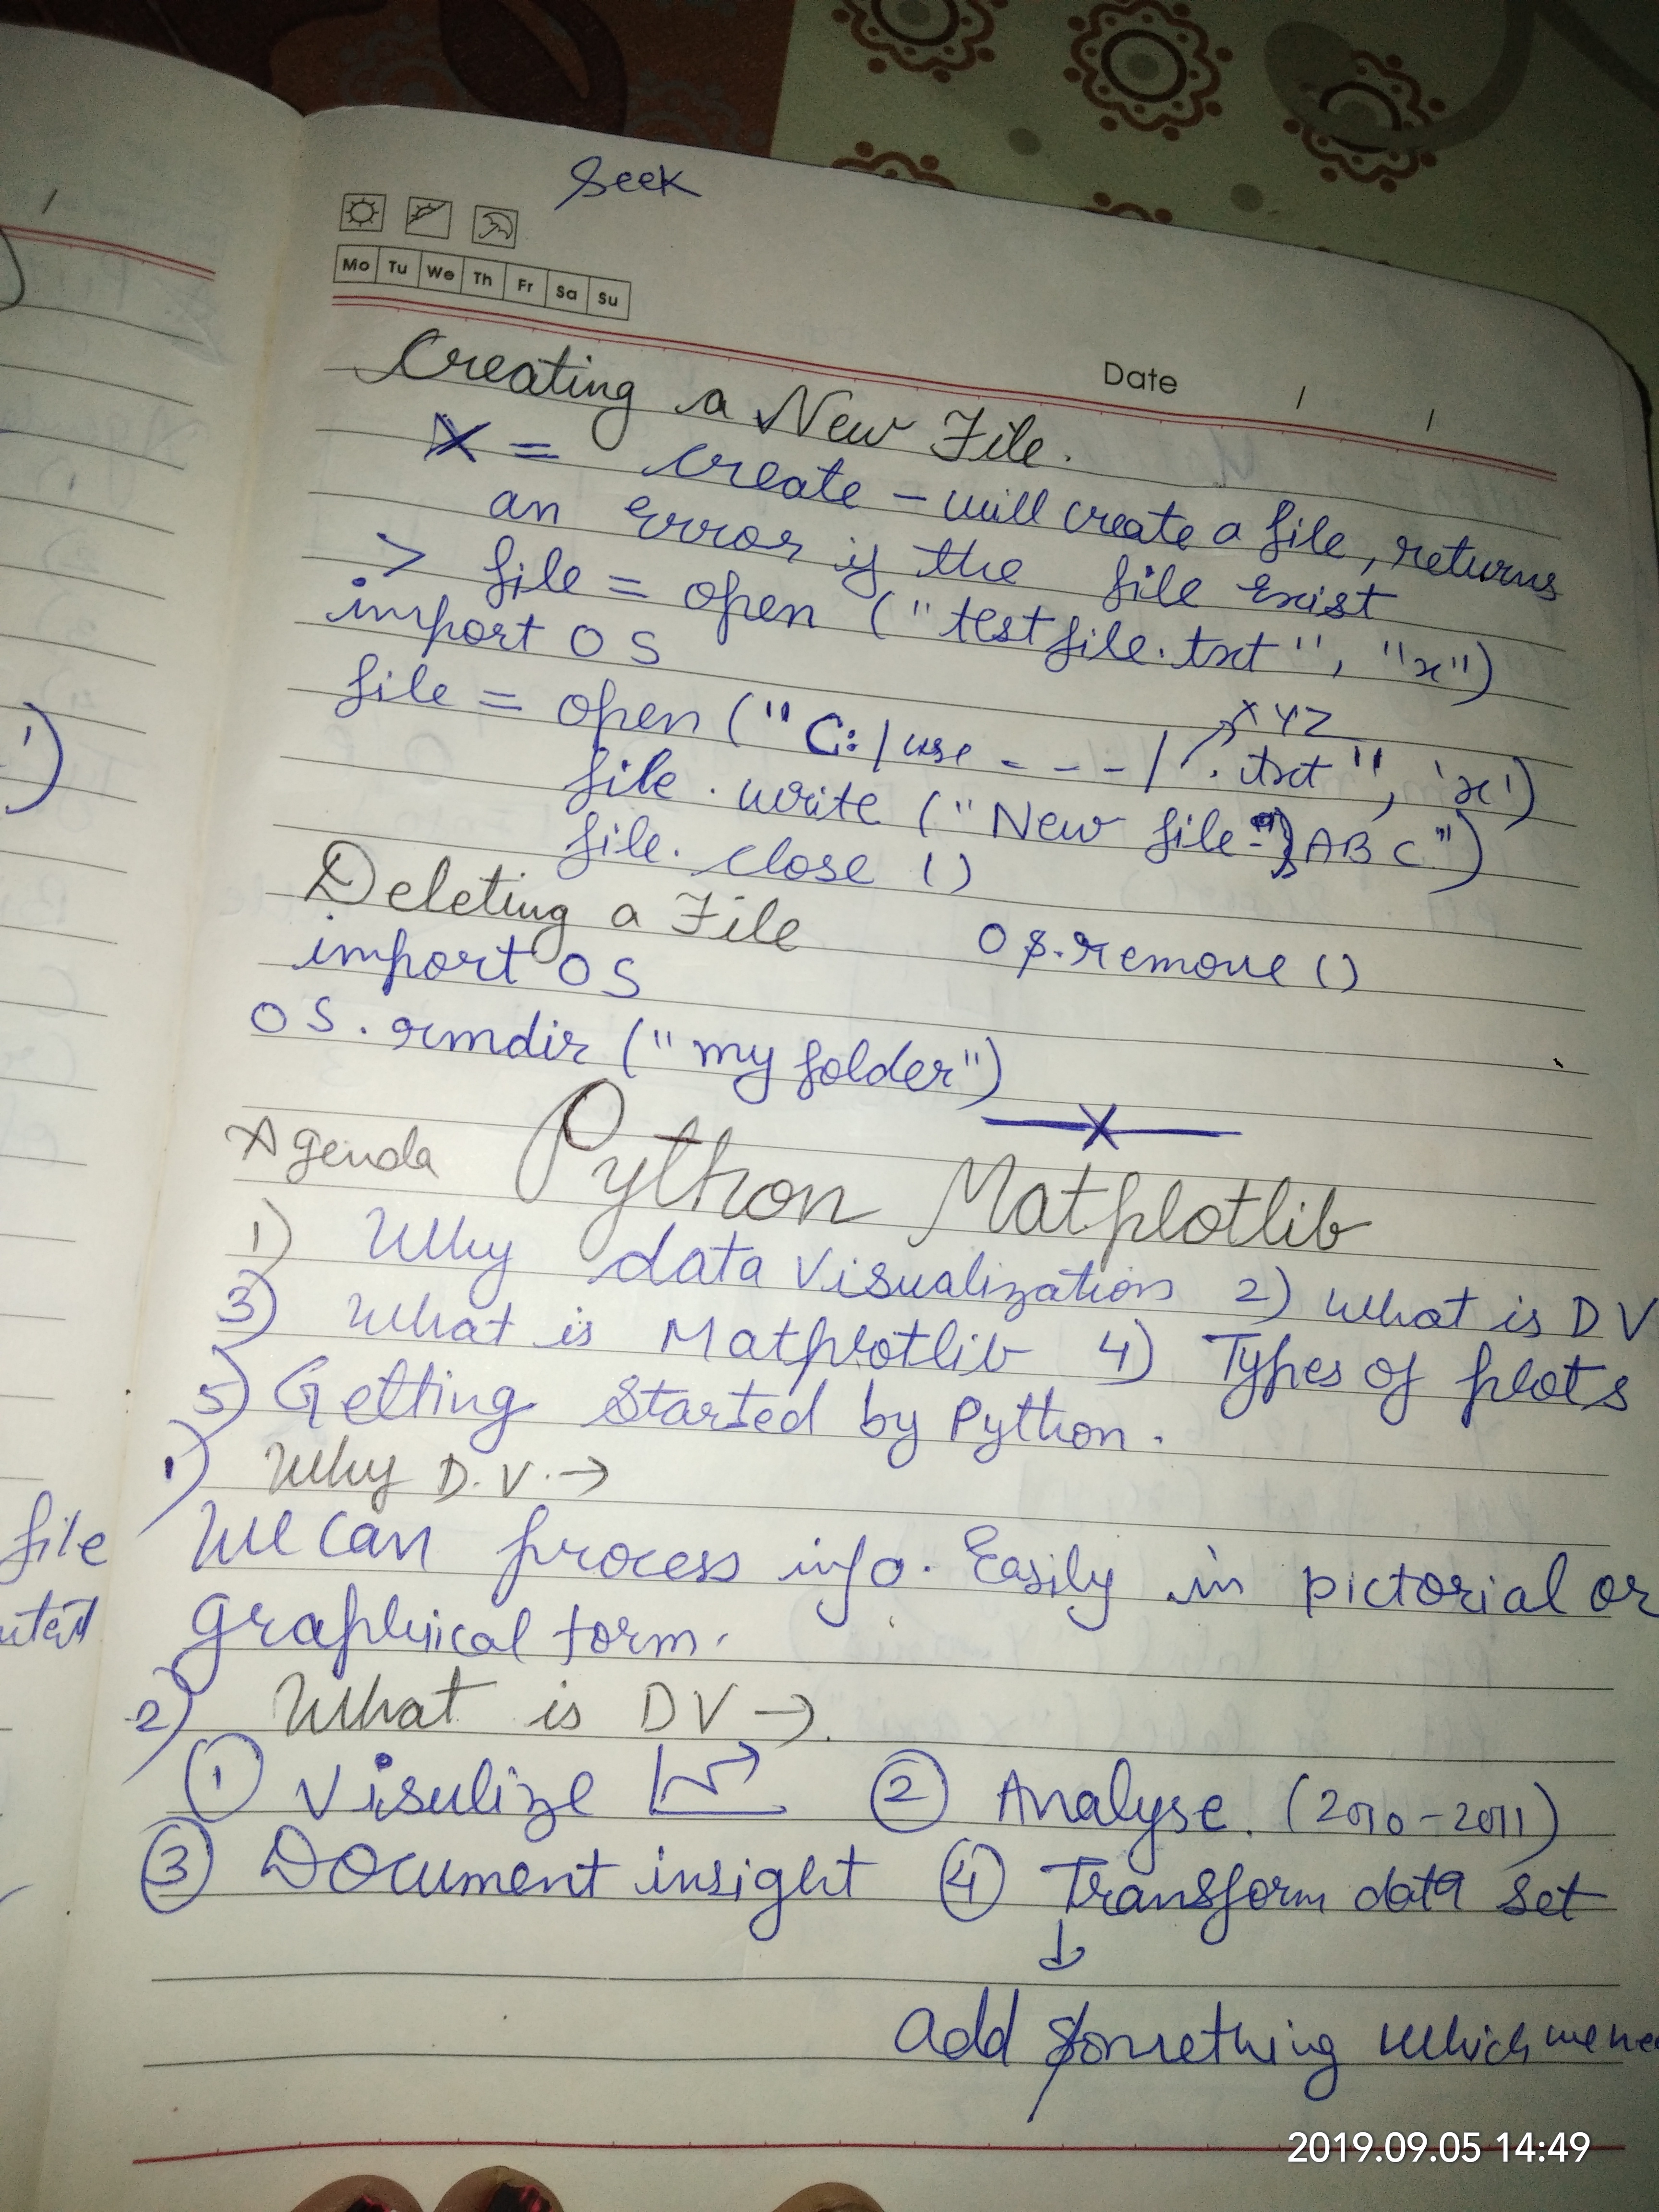 Seek
Mo Tu We Th Fr Sa Su
Date / /
Creating a New File.
X = create - will create a file, returns
an error if the file exist
> file = open ("testfile.txt", "x")
import OS
file = open ("C:/use - - - / .txt", 'x')
XYZ
file.write ("New file - ABC")
file.close ()
Deleting a File
os.remove ()
import OS
OS.rmdir ("my folder")
X
Agenda Python Matplotlib
1) Why data visualization 2) What is DV
3) What is Matplotlib 4) Types of plots
5) Getting Started by Python.
1) Why D.V. →
We can process info. Easily in pictorial or
graphical form.
2) What is DV →.
1 Visulize 2 Analyse. (2010-2011)
3 Document insight 4 Transform data set
↓
add something which we
file
2019.09.05 14:49